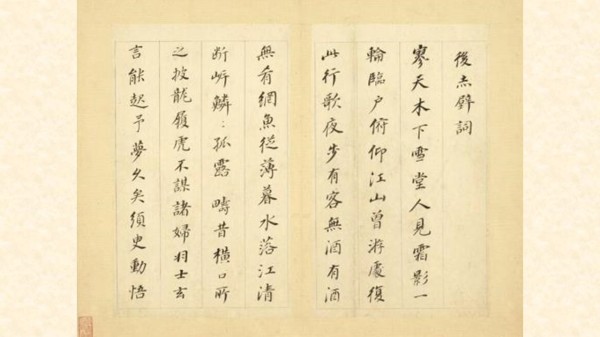 後赤壁詞
寥天木下雪堂人見霜影一
輪臨户俯仰江山曾游處復
此行歌夜步有客無酒有酒
無肴網魚從薄暮水落江清
断岍鱗〻孤露 疇昔橫口所
之披龍領虎不謀諸婦羽士玄
言能起予夢久矣須臾動悟